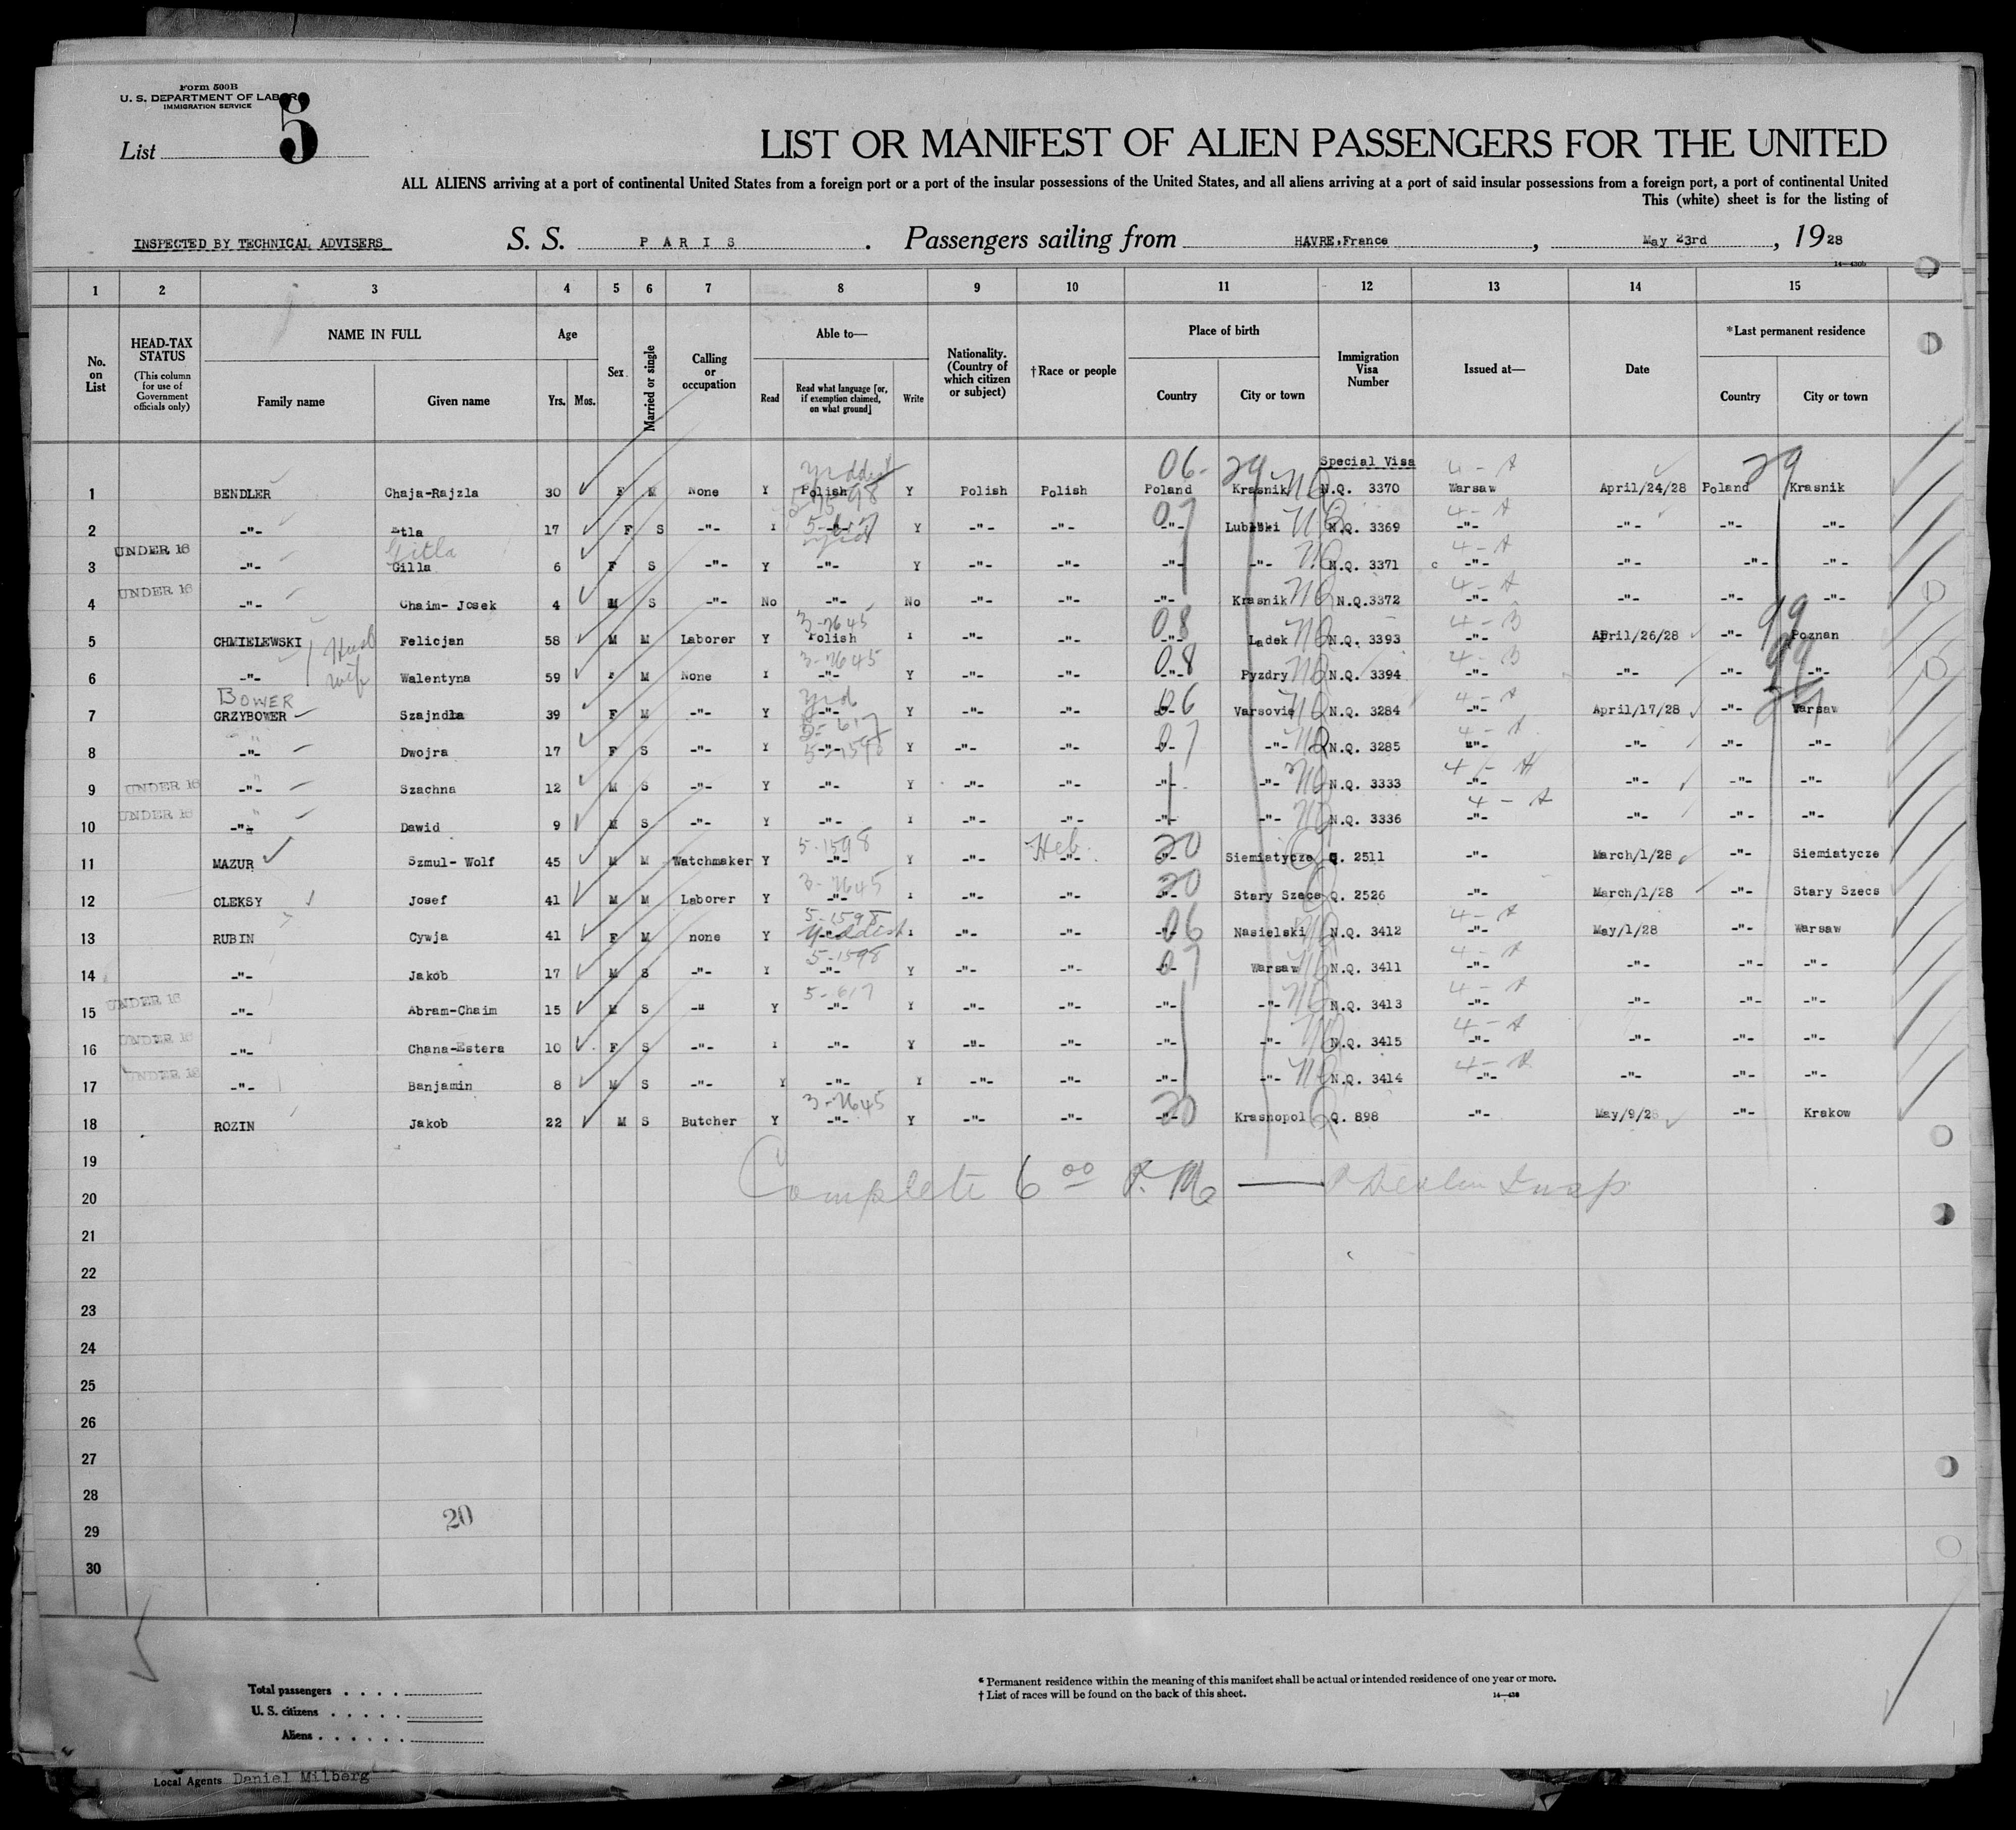 Form 500B
U. S. DEPARTMENT OF LABOR
IMMIGRATION SERVICE
List 5
LIST OR MANIFEST OF ALIEN PASSENGERS FOR THE UNITED
ALL ALIENS arriving at a port of continental United States from a foreign port or a port of the insular possessions of the United States, and all aliens arriving at a port of said insular possessions from a foreign port, a port of continental United
This (white) sheet is for the listing of
INSPECTED BY TECHNICAL ADVISERS S. S. PARIS . Passengers sailing from HAVRE,France , May 23rd , 1928
14—430b
1 2 3 4 5 6 7 8 9 10 11 12 13 14 15
No. on List
HEAD-TAX STATUS (This column for use of Government officials only)
NAME IN FULL Family name Given name
Age Yrs. Mos.
Sex
Married or single
Calling or occupation
Able to— Read Read what language [or, if exemption claimed, on what ground] Write
Nationality. (Country of which citizen or subject)
†Race or people
Place of birth Country City or town
Immigration Visa Number
Issued at—
Date
*Last permanent residence Country City or town
Yiddish 06- 29 Special Visa 4-A 29
1 BENDLER Chaja-Rajzla 30 F M None Y Polish Y Polish Polish Poland Krasnik N.Q. 3370 Warsaw April/24/28 Poland Krasnik
07 4-A
2 -"- Etla 17 F S -"- Y -"- Y -"- -"- -"- Lubelski N.Q. 3369 -"- -"- -"- -"-
UNDER 16 Gitla 4-A
3 -"- Gilla 6 F S -"- Y -"- Y -"- -"- -"- -"- N.Q. 3371 -"- -"- -"- -"-
UNDER 16 4-A
4 -"- Chaim- Josek 4 M S -"- No -"- No -"- -"- -"- Krasnik N.Q.3372 -"- -"- -"- -"-
3-7645 08 4-B 99
5 CHMIELEWSKI Husb Felicjan 58 M M Laborer Y Polish Y -"- -"- -"- Ladek N.Q. 3393 -"- April/26/28 -"- Poznan
3-7645 08 4-B 99
6 -"- wife Walentyna 59 F M None Y -"- Y -"- -"- -"- Pyzdry N.Q. 3394 -"- -"- -"- -"-
BOWER Yid 06 4-A
7 GRZYBOWER Szajndla 39 F M -"- Y -"- Y -"- -"- -"- Varsovie N.Q. 3284 -"- April/17/28 -"- Warsaw
5-617 07 4-A
8 -"- Dwojra 17 F S -"- Y -"- Y -"- -"- -"- -"- N.Q. 3285 -"- -"- -"- -"-
5-1598
UNDER 16 4-A
9 -"- Szachna 12 M S -"- Y -"- Y -"- -"- -"- -"- N.Q. 3333 -"- -"- -"- -"-
UNDER 16 4-A
10 -"- Dawid 9 M S -"- Y -"- Y -"- -"- -"- -"- N.Q. 3336 -"- -"- -"- -"-
5-1598 Heb. 20
11 MAZUR Szmul- Wolf 45 M M Watchmaker Y -"- Y -"- -"- -"- Siemiatycze Q. 2511 -"- March/1/28 -"- Siemiatycze
3-7645 20
12 OLEKSY Josef 41 M M Laborer Y -"- Y -"- -"- -"- Stary Szecs Q. 2526 -"- March/1/28 -"- Stary Szecs
5-1598 Yiddish 06 4-A
13 RUBIN Cywja 41 F M none Y -"- Y -"- -"- -"- Nasielski N.Q. 3412 -"- May/1/28 -"- Warsaw
5-1598 07 4-A
14 -"- Jakob 17 M S -"- Y -"- Y -"- -"- -"- Warsaw N.Q. 3411 -"- -"- -"- -"-
UNDER 16 5-617 4-A
15 -"- Abram-Chaim 15 M S -" Y -"- Y -"- -"- -"- -"- N.Q. 3413 -"- -"- -"- -"-
UNDER 16 4-A
16 -"- Chana-Estera 10 F S -"- Y -"- Y -"- -"- -"- -"- N.Q. 3415 -"- -"- -"- -"-
UNDER 16 4-A
17 -"- Banjamin 8 M S -"- Y -"- Y -"- -"- -"- -"- N.Q. 3414 -"- -"- -"- -"-
3-7645 20
18 ROZIN Jakob 22 M S Butcher Y -"- Y -"- -"- -"- Krasnopol Q. 898 -"- May/9/28 -"- Krakow
19
Complete 6 00 P.M —
20
21
22
23
24
25
26
27
28
20
29
30
* Permanent residence within the meaning of this manifest shall be actual or intended residence of one year or more.
† List of races will be found on the back of this sheet. 14—430
Total passengers
U. S. citizens
Aliens
Local Agents Daniel Milberg